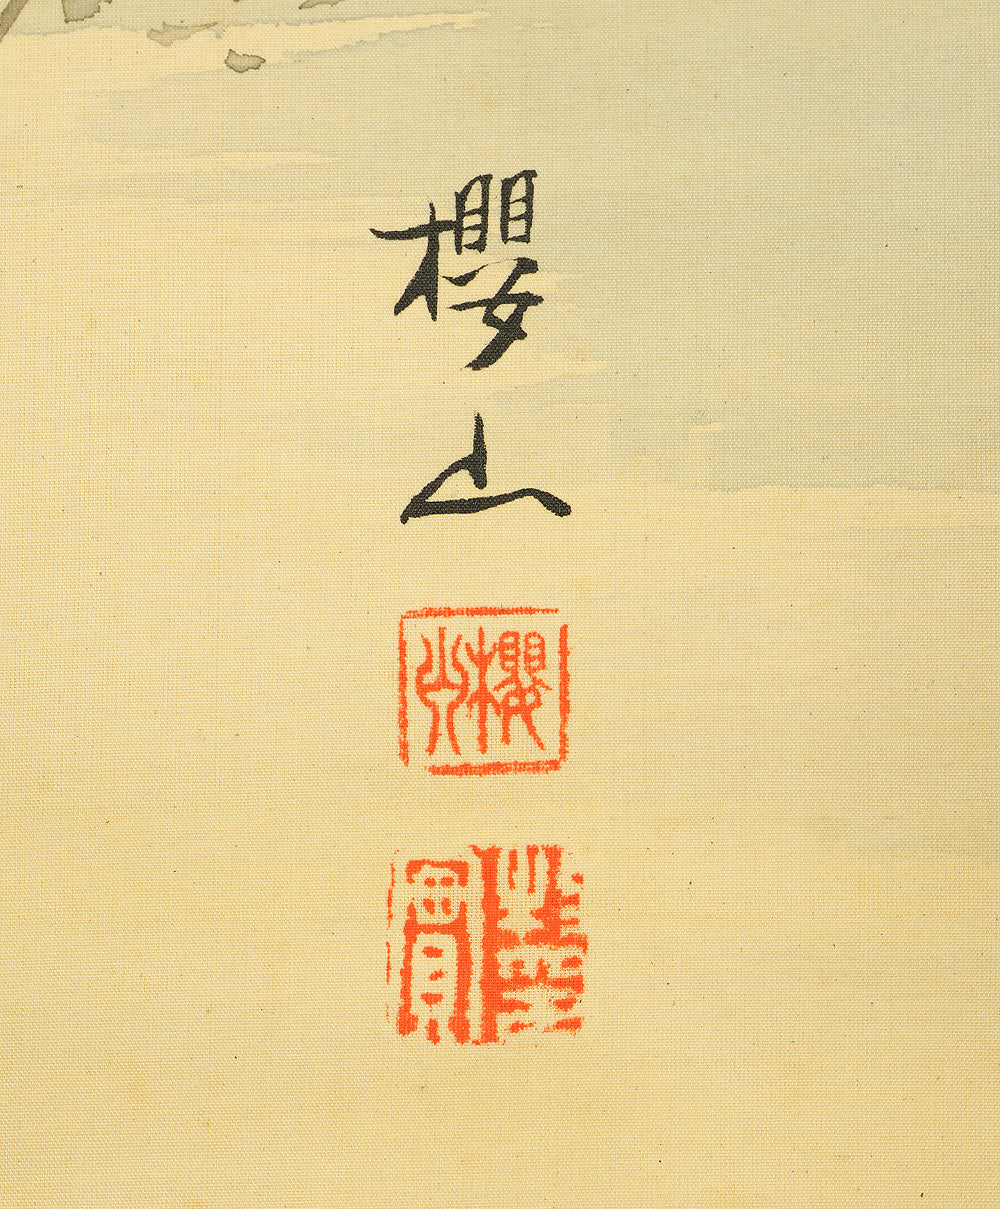 櫻
山
櫻山